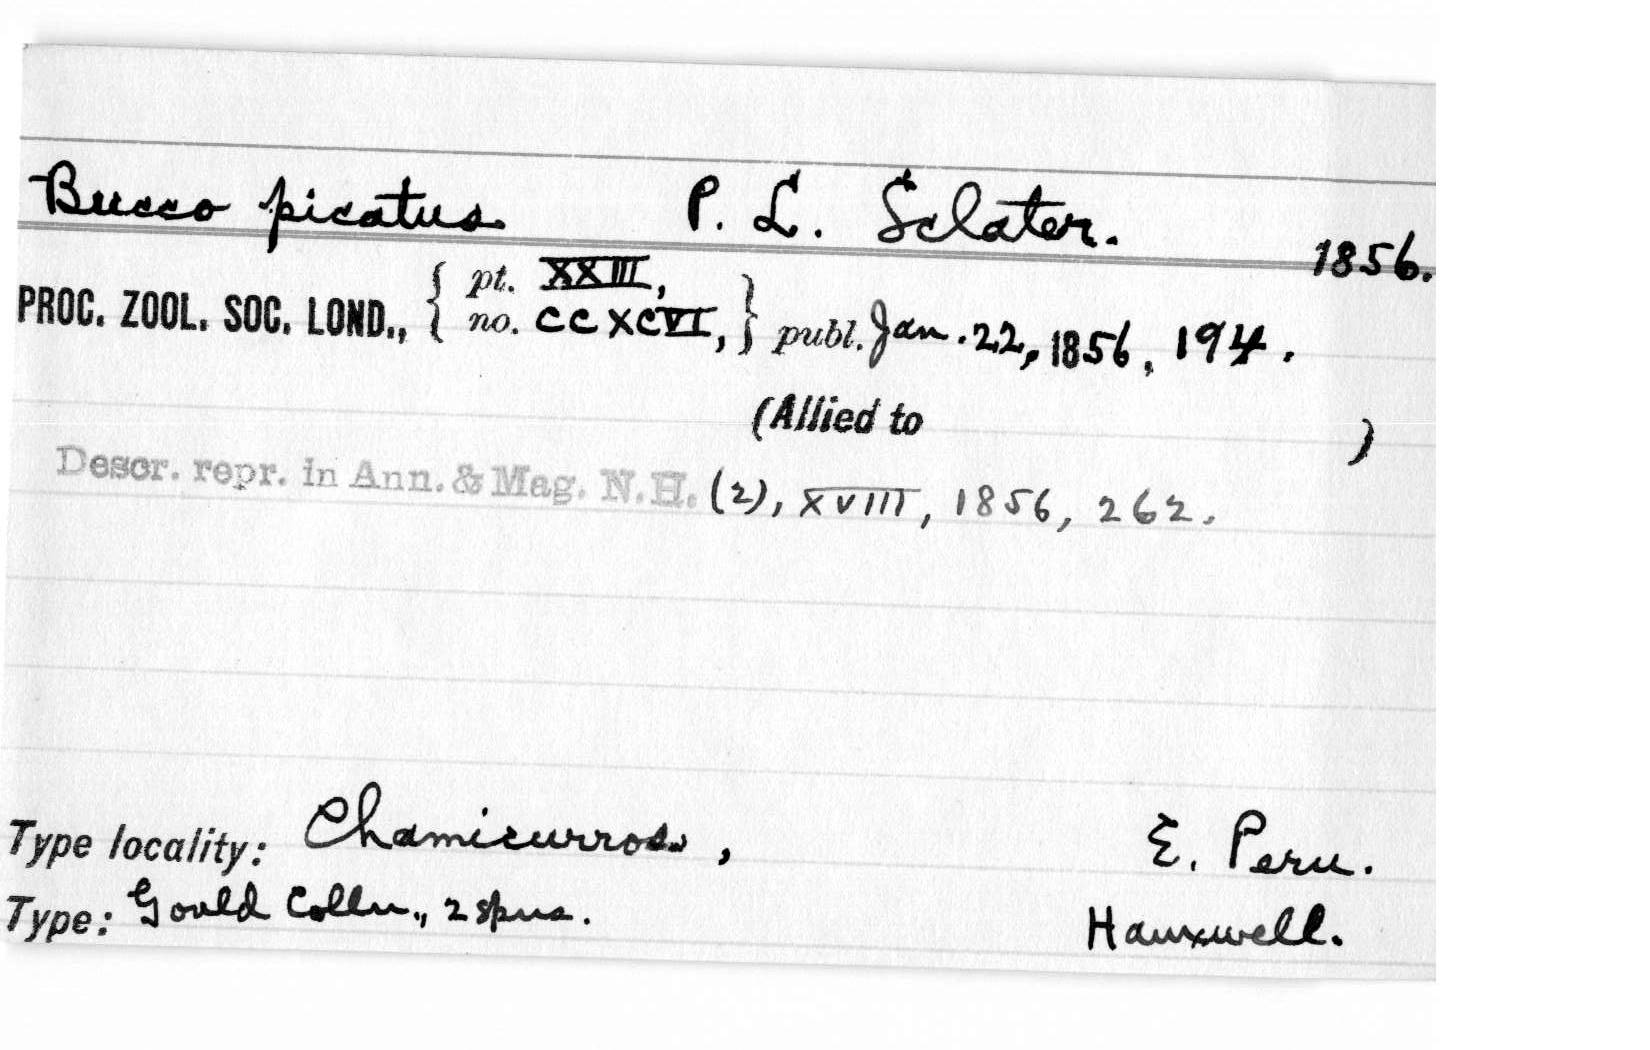 Bucco picatus P. L. Sclater. 1856.
PROC. ZOOL. SOC. LOND., { pt. XXIII, no. CCXCVI, } publ. Jan. 22, 1856, 194.
(Allied to )
Descr. repr. in Ann. & Mag. N. H. (2), XVIII, 1856, 262.
Type locality: Chamicurros, E. Peru.
Type: Gould Colln., 2 spns. Hauxwell.